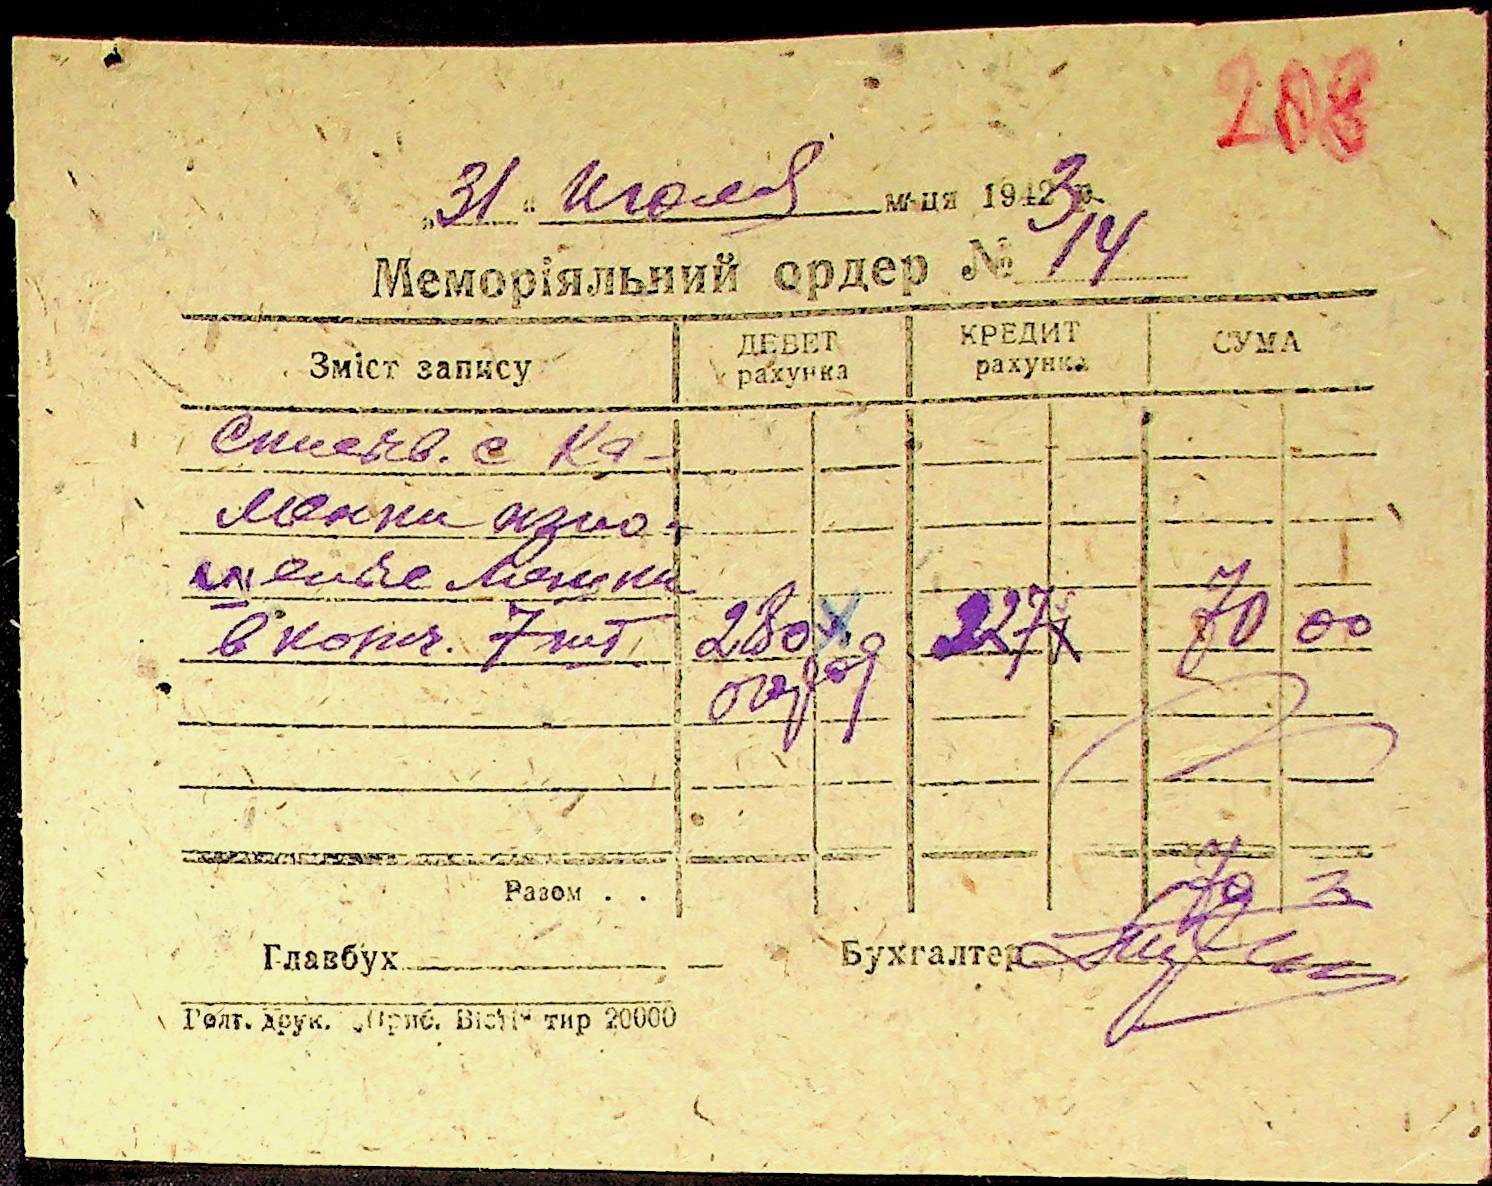 208
„31“ Июля м-ця 1943 р.
Меморіяльний ордер № 14
Зміст запису ДЕБЕТ рахунка КРЕДИТ рахунка СУМА
с Ка-
менки изно-
мешки
7 шт 280 227 70 00
Разом . . 70
Главбух
Бухгалтер
Голт. друк. „Приб. Вісті“ тир 20000